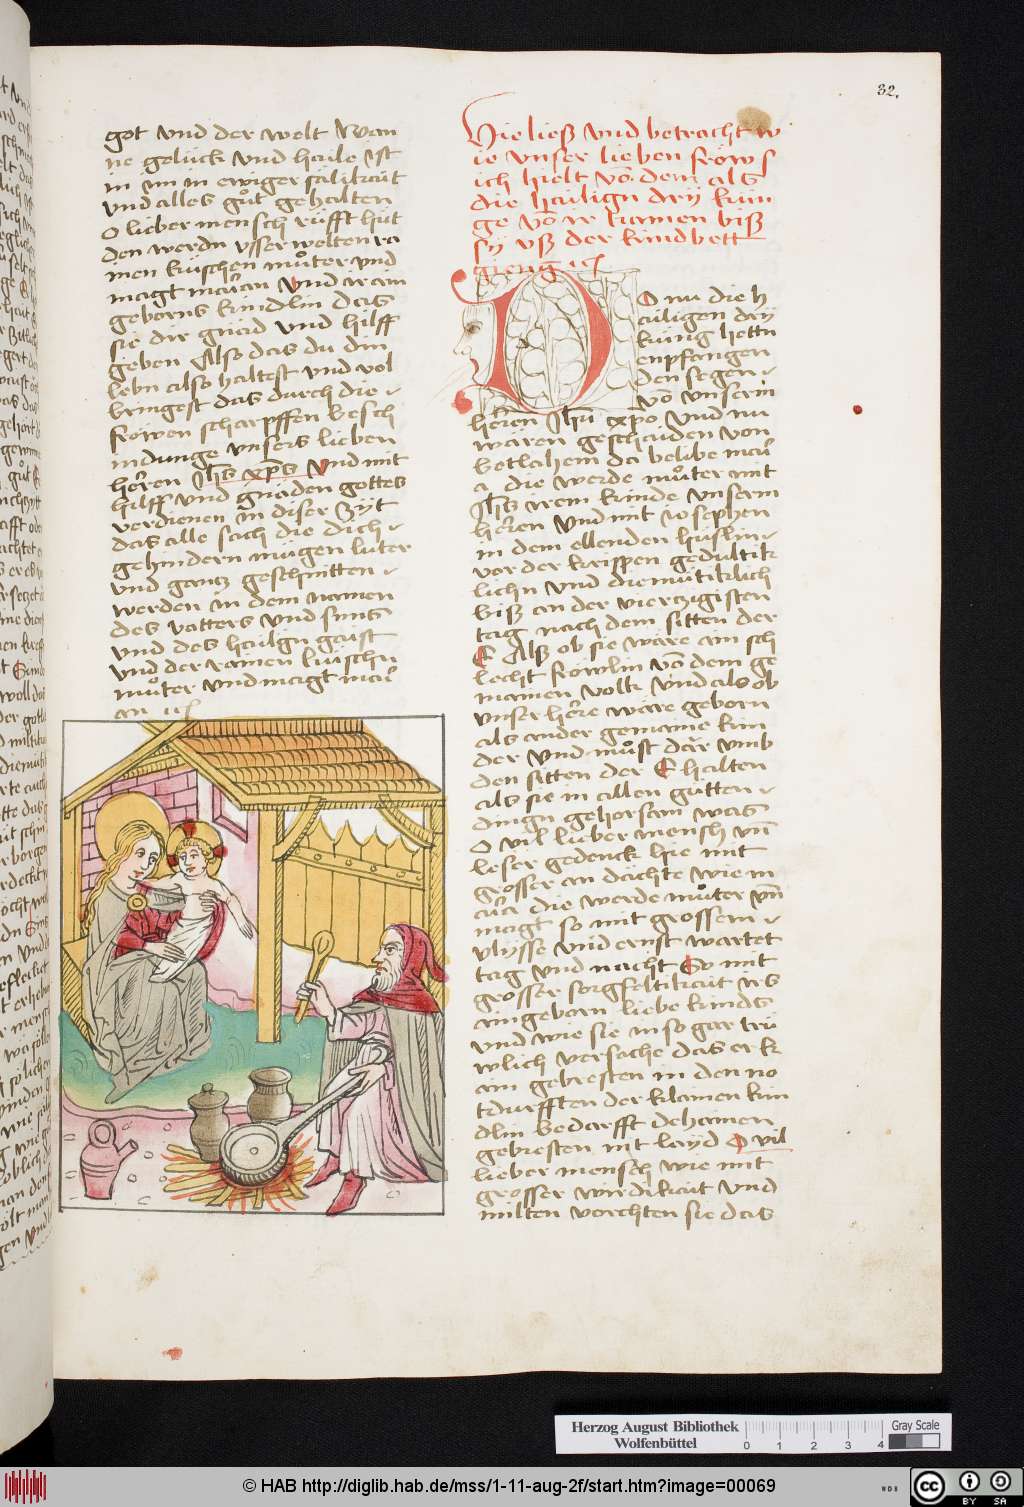 32.
got vnd der welt Wan
ne gelück vnd haile ist
in im in ewiger sälikait
vnd alles gůt gehalten
O lieber mensch rüfft hüt
den werdn vsserwelten ra
inen küschen můter vnd
magt marian vnd ir ain
geborns kindlin das
sie dir gnäd vnd hilff
geben Also das du din
lebn also haltest vnd vol
bringest das durch die
fröwen scharpffen besch
nidunge vnsers lieben
herren Jhs xps vnd mit
hilff vnd gnaden gottes
verdienen in diser Zyt
das alle sach die dich
gehindern mügen luter
vnd gantz geschnitten
werden in dem namen
des vatters vnd suns
vnd des hailgn gaist
vnd der rainen küschn
můter vnd magt mari
an
Hie ließ vnd betracht w
ie vnser lieben fröw s
ich hielt vō dem als
die hailign drÿ kün
ge vō ir kamen biß
sÿ vß der kindbett
gieng
DO nu die h
ailigen drÿ
küng hettn
enpfangen
den segen
vō vnserm
herren Jhu xpo vnd nu
waren geschaiden von
betlahem da belibe mari
a die werde můter mit
Jhs irem kinde vnserm
herren vnd mit iosephen
in dem ellenden hüslin
vor der krippen gedultik
lichn vnd diemütiklich
biß an den vierzigisten
tag nach dem sitten der
E Alß ob sie wäre ain sch
lecht fröwlin vō dem ge
mainen volk vnd als ob
vnser herre wäre geborn
als ander gemaine kin
der vnd můst dar vmb
den sitten der E halten
als sie in allen gůtten
dingn gehorsam was
O vil lieber mensch vn
leser gedenck hie mit
grosser andächte wie m
aria die werde můter vn
magt so mit grossem
vlysse vnd ernst wartet
tag vnd nacht So mit
grosser sorgfeltikait irs
aingeborn liebe kinds
vnd wie sie in so gar trü
wlich versache das er k
ain gebresten in den no
tdurfften der klainen kin
dlin bedarfft dehainen
gebresten nit layd O vil
lieber mensch wie mit
grosser wirdikait vnd
milten vorchten sie das
Herzog August Bibliothek
Wolfenbüttel
0 1 2 3 4
Gray Scale
© HAB http://diglib.hab.de/mss/1-11-aug-2f/start.htm?image=00069
WDB
cc BY SA